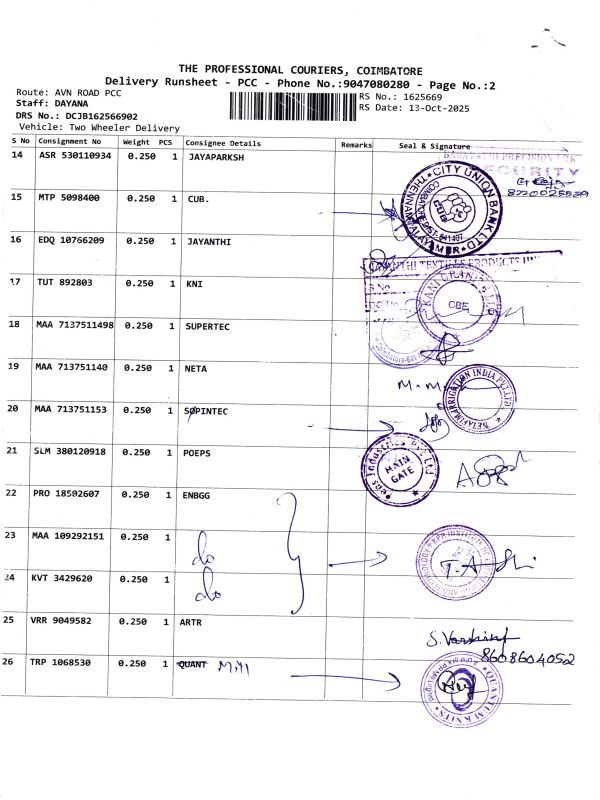 THE PROFESSIONAL COURIERS, COIMBATORE
Delivery Runsheet - PCC - Phone No.:9047080280 - Page No.:2
Route: AVN ROAD PCC
RS No.: 1625669
Staff: DAYANA
RS Date: 13-Oct-2025
DRS No.: DCJB162566902
Vehicle: Two Wheeler Delivery
S No Consignment No Weight PCS Consignee Details Remarks Seal & Signature
14 ASR 530110934 0.250 1 JAYAPARKSH
PRECISION
SECURITY
8220025539
15 MTP 5098400 0.250 1 CUB.
CITY UNION BANK LTD
CUB
16 EDQ 10766209 0.250 1 JAYANTHI
JAYANTHI TEXTILE PRODUCTS
17 TUT 892803 0.250 1 KNI
S No
CBE
18 MAA 7137511498 0.250 1 SUPERTEC
19 MAA 713751140 0.250 1 NETA
NETAFIM IRRIGATION INDIA PVT LTD
20 MAA 713751153 0.250 1 SOPINTEC
21 SLM 380120918 0.250 1 POEPS
Industries Pvt Ltd
MAIN
GATE
22 PRO 18502607 0.250 1 ENBGG
23 MAA 109292151 0.250 1 do
24 KVT 3429620 0.250 1 do
25 VRR 9049582 0.250 1 ARTR
8608604052
26 TRP 1068530 0.250 1 QUANT Mill
QUANTUM KNITS